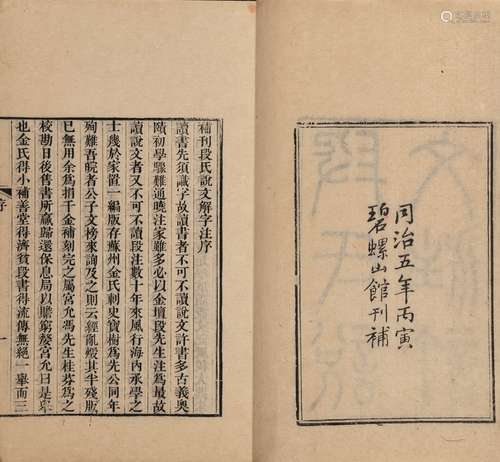 同治五年丙寅
碧螺山館刊補
補刊段氏說文解字注序
讀書先須識字故讀書者不可不讀說文許書多古義奧
賾初學驟難通曉注家雖多必以金壇段先生注為最故
讀說文者又不可不讀段注數十年來風行海內承學之
士幾於家置一編版存蘇州金氏刺史寶樹為先公同年
殉難吾皖者公子文榜來詢及之則云經亂燬其半殘版
已無用余為捐千金補刻完之屬宮允馮先生桂芬為之
校勘日後售書所贏歸還保息局以贍窮嫠宮允曰是舉
也金氏得小補善堂得濟貧段書得流傳無絕一舉而三
序
一